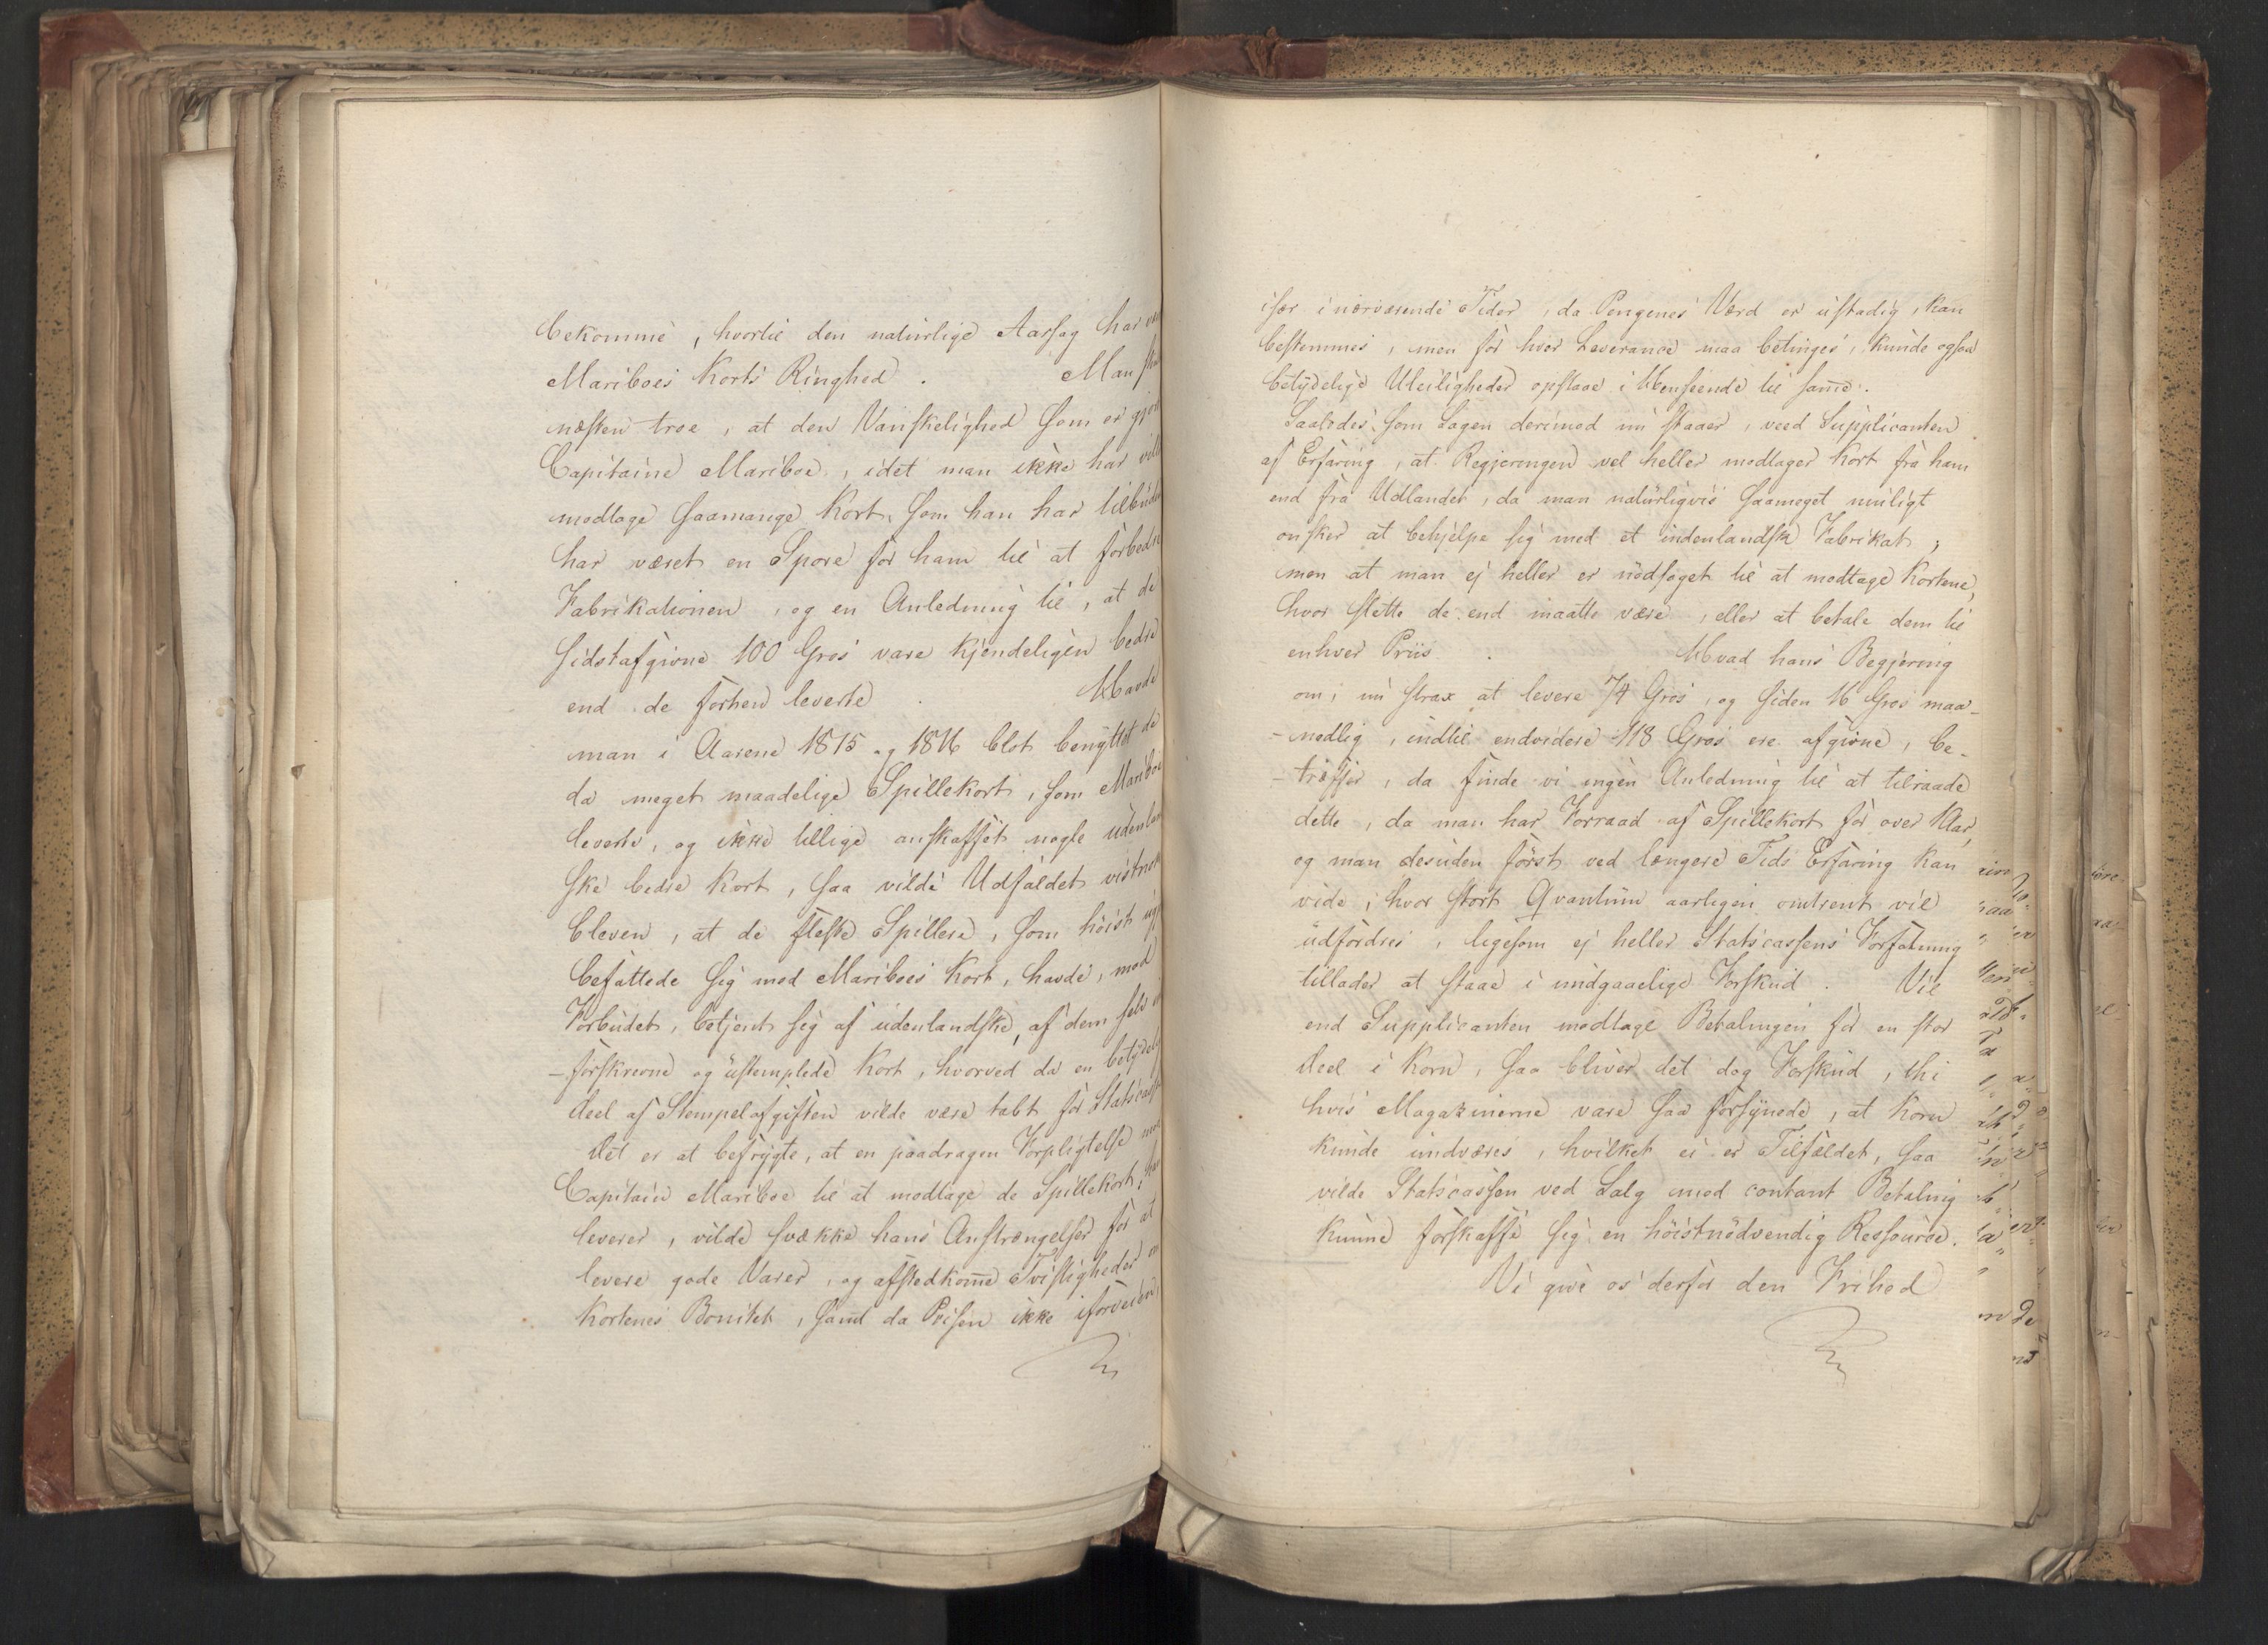 bekomme, hvortil den naturlige Aarsag har
Mariboes Korts Ringhed. Man
næsten troe, at den Vanskelighed som er
Capitaine Mariboe, idet man ikke har
modtage saamange Kort, som han har tilbuden
har været en Spore for ham til at forbedre
Fabrikationen, og en Anledning til, at de
sidstafgivne 100 Gros vare kjendeligen bedre
end de forhen leverte. Havde
man i Aarene 1815 og 1816 blot benyttet de
da meget maadelige Spillekort, som Mariboe
leverte, og ikke tillige anskaffet nogle udenlan
ske bedre Kort, saa vilde Udfaldet vistnok
bleven, at de fleste Spillere, som höist
befattede sig med Mariboes Kort, havde, mod
Forbudet, betjent sig af udenlandske, af dem selv
forskrevne og ustemplede Kort, hvorved da en
deel af Stempelafgiften vilde være tabt for Statscass
Det er at befrygte, at en paadragen Forpligtelse
Capitain Mariboe til at modtage de Spillekort,
leverer, vilde svække hans Anstrængelser for at
levere gode Varer, og afstedkomme Tvistigheder
Kortenes Bonitet, samt da Prisen ikke iforveien,
især i nærværende Tider, da Pengenes Værd er ustadig, kan
bestemmes, men for hver Leverance maa betinges, kunde ogsaa
betydelige Uleiligheder opstaae i Henseende til samme.
Saaledes som Sagen derimod nu staaer, veed Supplicanten
af Erfaring, at Regjeringen vel heller modtager Kort fra ham
end fra Udlandet, da man naturligviis saameget muligt
onsker at behjelpe sig med et indenlandsk Fabrikat;
men at man ej heller er nödsaget til at modtage Kortene,
hvor slette de end maatte være, eller at betale dem til
enhver Priis. Hvad hans Begjering
om, nu strax at levere 74 Gros, og siden 16 Gros maa-
-nedlig, indtil endvidere 118 Gros ere afgivne, be-
-træffer, da finde vi ingen Anledning til at tilraade
dette, da man har Forraad af Spillekort for over 1 Aar,
og man desuden först ved længere Tids Erfaring kan
vide, hvor stort Qvantum aarligen omtrent vil
udfordres, ligesom ej heller Statscassens Forfatning
tillader at staae i undgaaelige Forskud. Vil
end Supplicanten modtage Betalingen for en stor
deel i Korn, saa bliver det dog Forskud, thi
hvis Magazinerne vare saa forsynede, at Korn
kunde undværes, hvilket ei er Tilfældet, saa
vilde Statscassen ved Salg mod contant Betaling
kunne forskaffe sig en höistnödvendig Ressource.
Vi give os derfor den Frihed